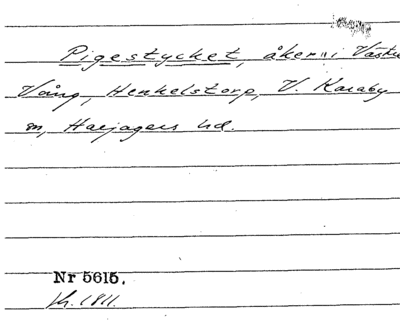 Pigestycket, åker i Västra
Vång, Henkelstorp, V. Karaby
sn, Harjagers hd.
Nr 5615.
1811.